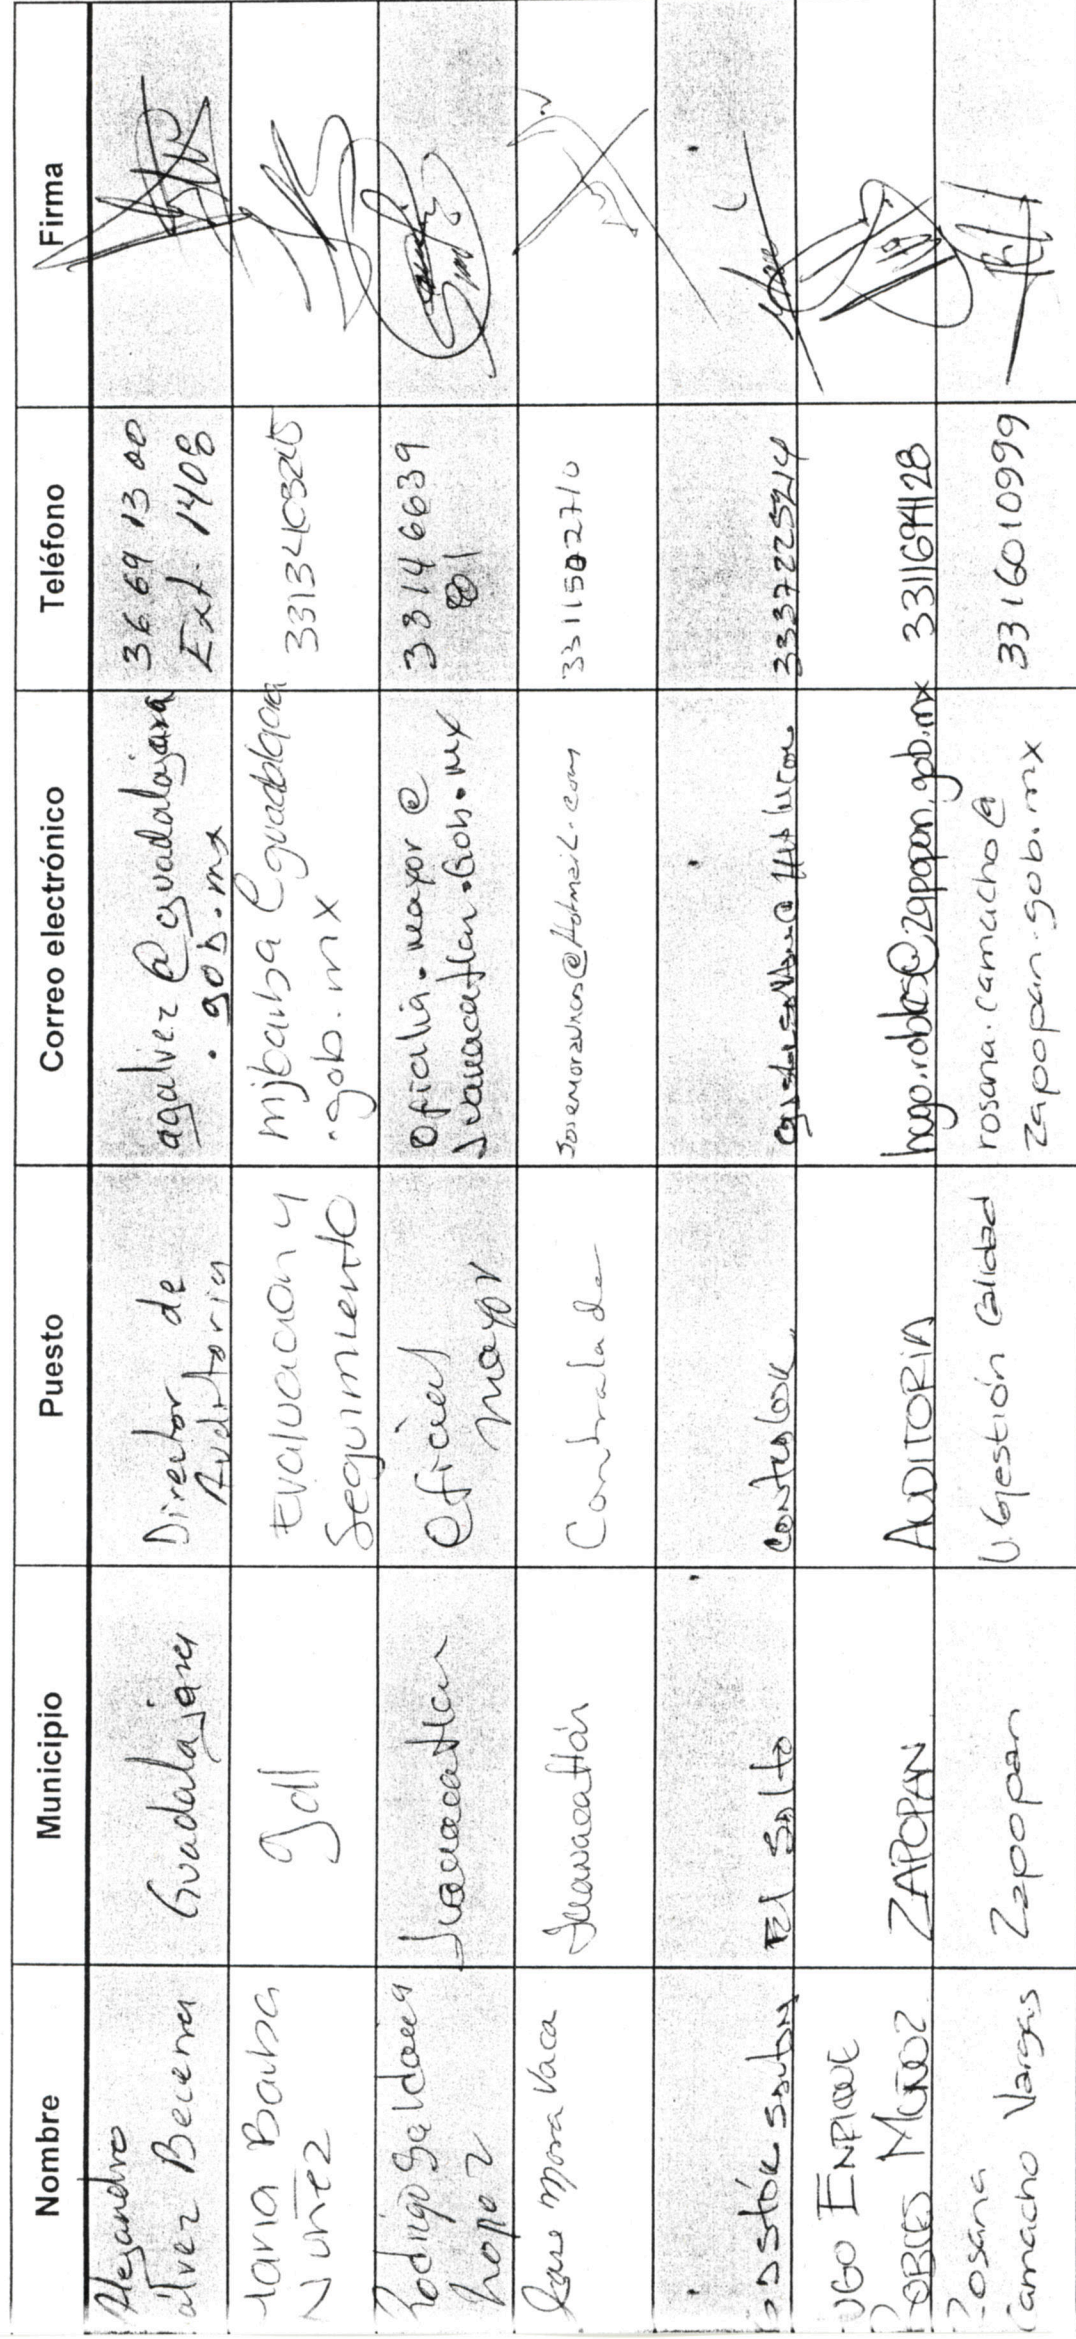 Nombre Municipio Puesto Correo electrónico Teléfono Firma
Alejandro
álvez Becerra Guadalajara Director de
Auditoria agalvez@guadalajara
.gob.mx 3669 13 00
Ext. 1408
María Barba
Nuñez Gdl Evaluación y
Seguimiento mjbarba@guadalajara
.gob.mx
Rodrigo Saldaña
Lopez Juanacatlan Oficial
mayor oficialia.mayor@
Juanacatlan.Gob.mx 33146639
801
Jose Mora Vaca Juanacatlán Contralade @hotmail.com
El Salto Contralor 3337225214
UGO ENRIQUE
ROBLES MUÑOZ ZAPOPAN AUDITORIA hugo.robles@zapopan.gob.mx 3311694128
Rosana
Camacho Vargas Zapopan U. Gestión Calidad rosana.camacho@
zapopan.gob.mx 3316010999